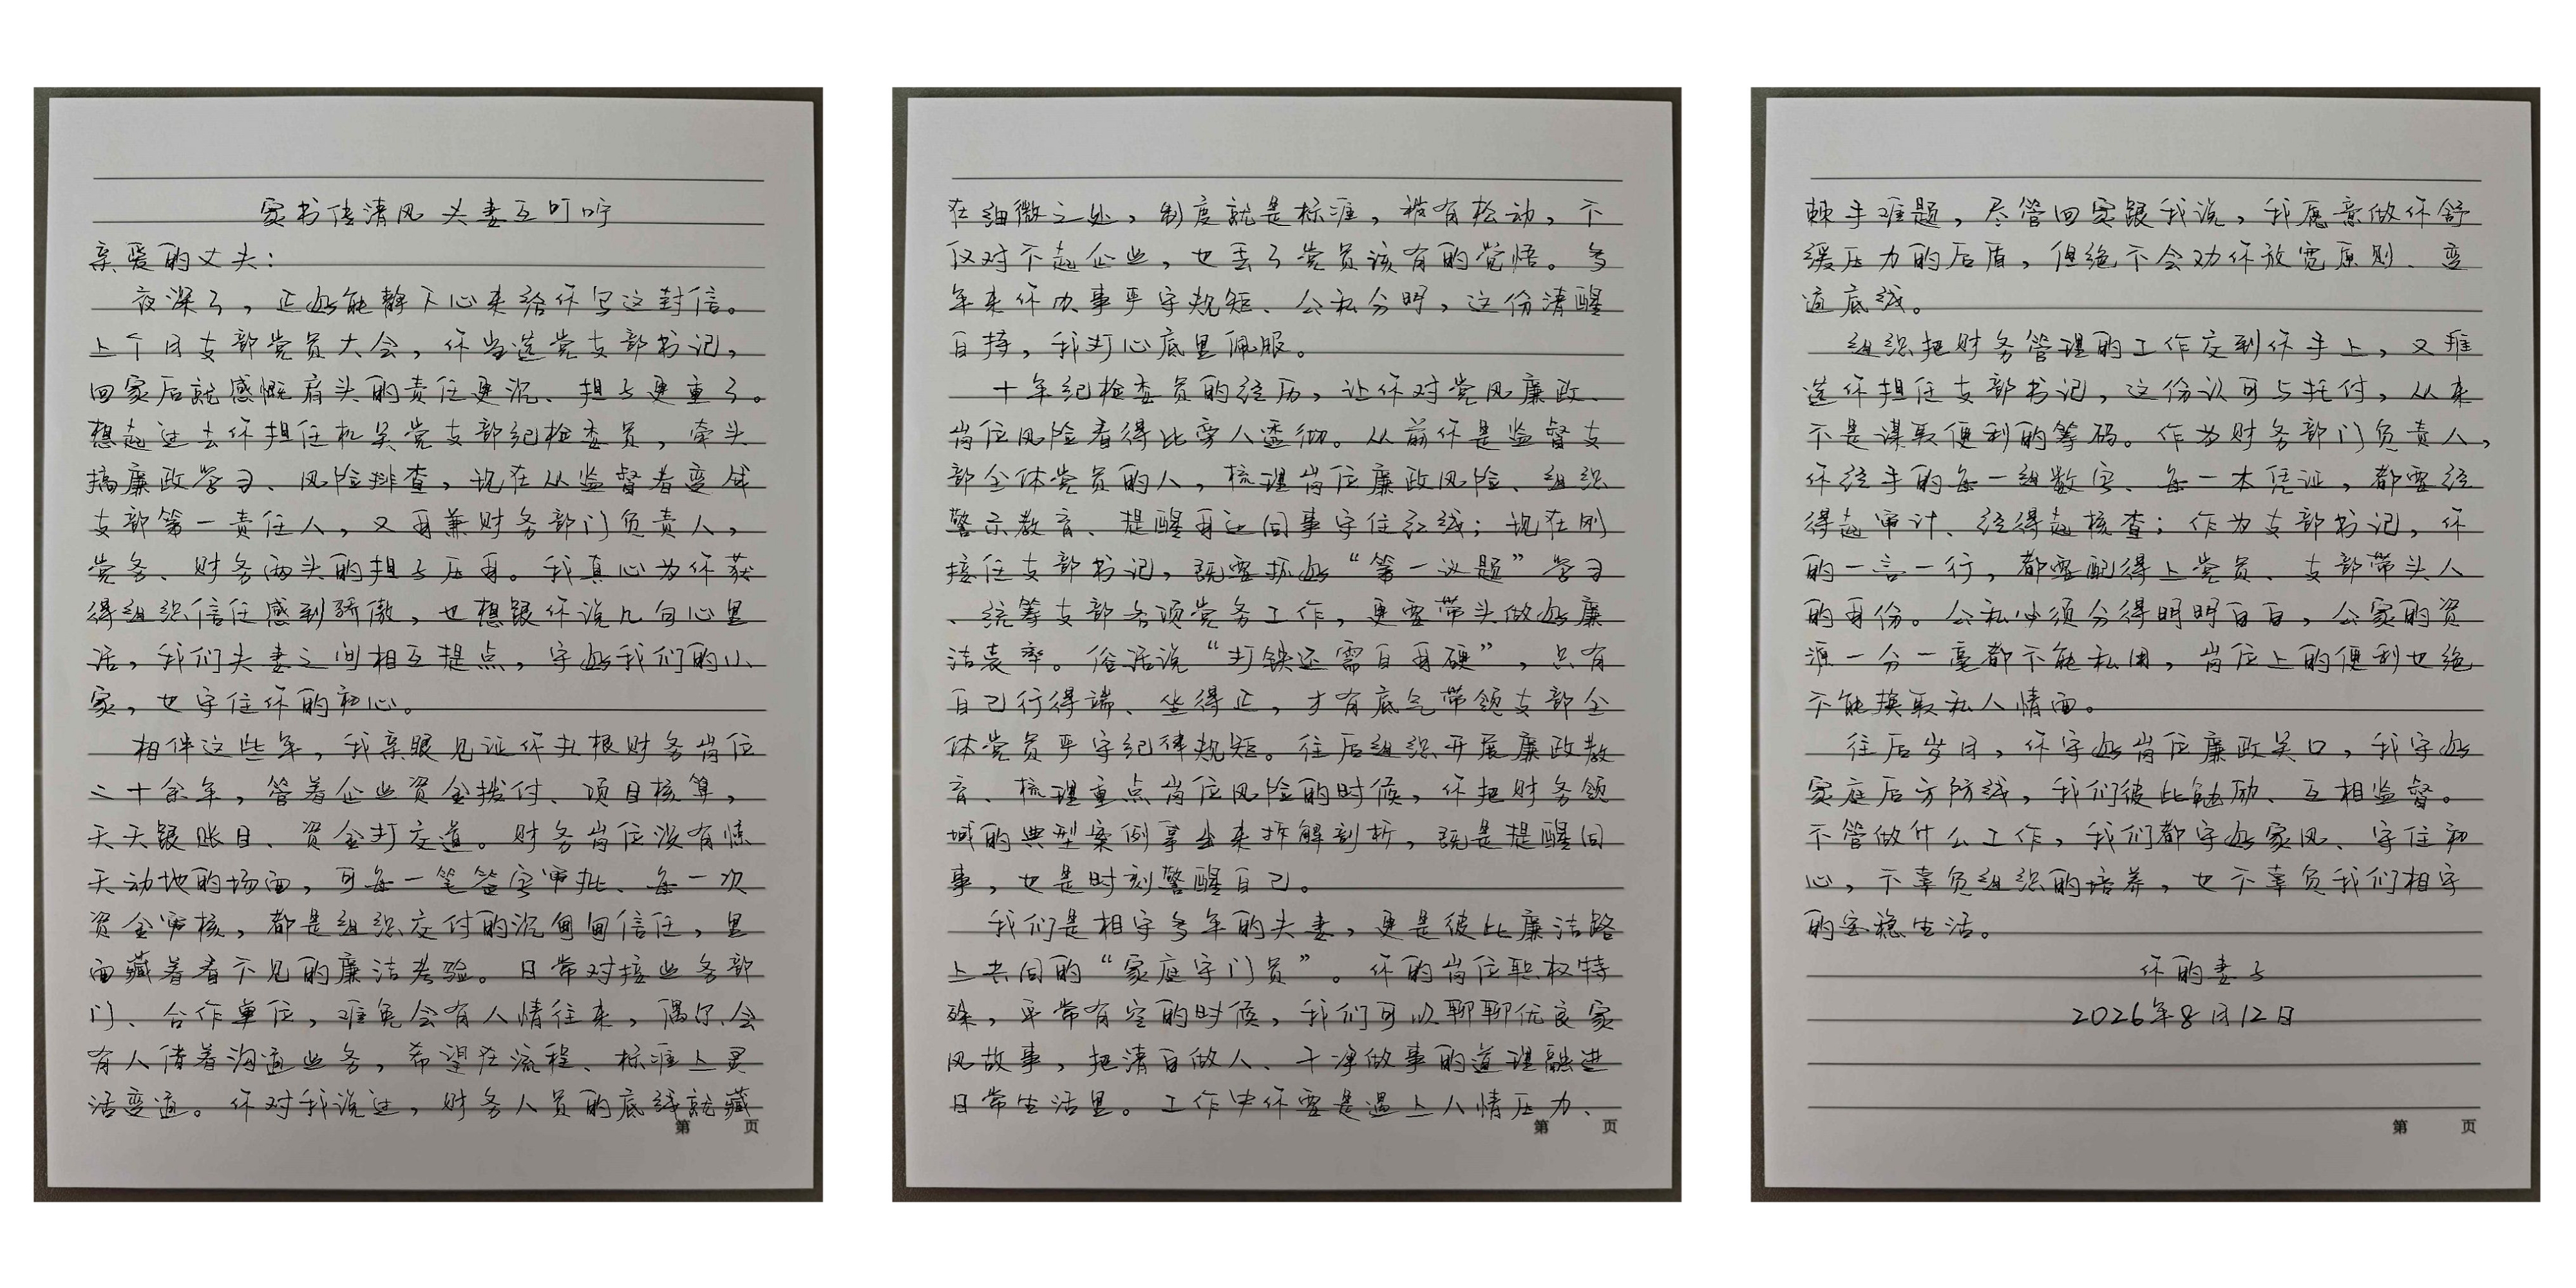 家书传清风 夫妻互叮咛
亲爱的丈夫：
夜深了，正好能静下心来给你写这封信。
上个月支部党员大会，你当选党支部书记，
回家后就感慨肩头的责任更沉、担子更重了。
想起过去你担任机关党支部纪检委员，牵头
搞廉政学习、风险排查，现在从监督者变成
支部第一责任人，又再兼财务部门负责人，
党务、财务两头的担子压身。我真心为你获
得组织信任感到骄傲，也想跟你说几句心里
话，我们夫妻之间相互提点，守好我们的小
家，也守住你的初心。
相伴这些年，我亲眼见证你扎根财务岗位
二十余年，管着企业资金拨付、项目核算，
天天跟账目、资金打交道。财务岗位没有惊
天动地的场面，可每一笔签字审批、每一次
资金审核，都是组织交付的沉甸甸信任，里
面藏着看不见的廉洁考验。日常对接业务部
门、合作单位，难免会有人情往来，偶尔会
有人借着沟通业务，希望在流程、标准上灵
活变通。你对我说过，财务人员的底线就藏
第 页
在细微之处，制度就是标准，稍有松动，不
仅对不起企业，也丢了党员该有的觉悟。多
年来你办事严守规矩、公私分明，这份清醒
自持，我打心底里佩服。
十年纪检委员的经历，让你对党风廉政、
岗位风险看得比旁人透彻。从前你是监督支
部全体党员的人，梳理岗位廉政风险、组织
警示教育、提醒身边同事守住红线；现在刚
接任支部书记，既要抓好“第一议题”学习
、统筹支部各项党务工作，更要带头做好廉
洁表率。俗话说“打铁还需自身硬”，只有
自己行得端、坐得正，才有底气带领支部全
体党员严守纪律规矩。往后组织开展廉政教
育、梳理重点岗位风险的时候，你把财务领
域的典型案例拿出来拆解剖析，既是提醒同
事，也是时刻警醒自己。
我们是相守多年的夫妻，更是彼此廉洁路
上共同的“家庭守门员”。你的岗位职权特
殊，平常有空的时候，我们可以聊聊优良家
风故事，把清白做人、干净做事的道理融进
日常生活里。工作中你要是遇上人情压力、
第 页
棘手难题，尽管回家跟我说，我愿意做你舒
缓压力的后盾，但绝不会劝你放宽原则、变
通底线。
组织把财务管理的工作交到你手上，又推
选你担任支部书记，这份认可与托付，从来
不是谋取便利的筹码。作为财务部门负责人，
你经手的每一组数字、每一本凭证，都要经
得起审计、经得起核查；作为支部书记，你
的一言一行，都要配得上党员、支部带头人
的身份。公私必须分得明明白白，公家的资
源一分一毫都不能私用，岗位上的便利也绝
不能换取私人情面。
往后岁月，你守好岗位廉政关口，我守好
家庭后方防线，我们彼此勉励、互相监督。
不管做什么工作，我们都守好家风、守住初
心，不辜负组织的培养，也不辜负我们相守
的安稳生活。
你的妻子
2026年8月12日
第 页